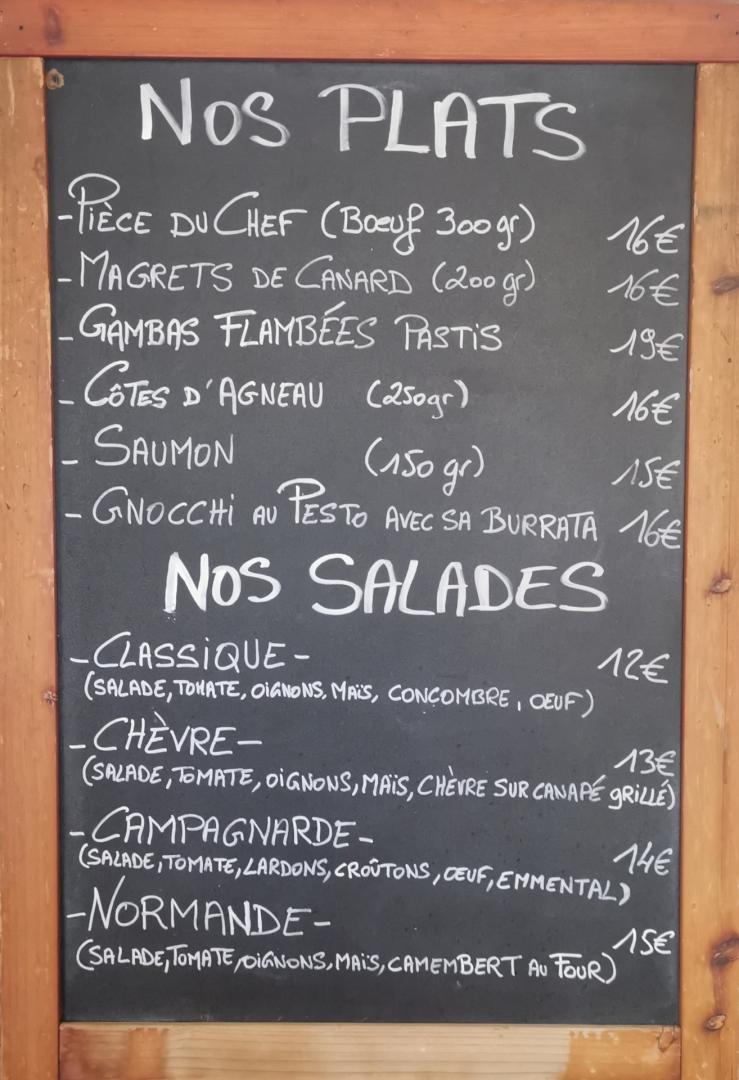 NOS PLATS
- PIÈCE DU CHEF (Bœuf 300 gr) 16€
- MAGRETS DE CANARD (200 gr) 16€
- GAMBAS FLAMBÉES PASTIS 19€
- CÔTES D'AGNEAU (250gr) 16€
- SAUMON (150 gr) 15€
- GNOCCHI AU PESTO AVEC SA BURRATA 16€
NOS SALADES
- CLASSIQUE - 12€
(SALADE, TOMATE, OIGNONS, MAÏS, CONCOMBRE, OEUF)
- CHÈVRE - 13€
(SALADE, TOMATE, OIGNONS, MAÏS, CHÈVRE SUR CANAPÉ GRILLÉ)
- CAMPAGNARDE - 14€
(SALADE, TOMATE, LARDONS, CROÛTONS, ŒUF, EMMENTAL)
- NORMANDE - 15€
(SALADE, TOMATE, OIGNONS, MAÏS, CAMEMBERT AU FOUR)